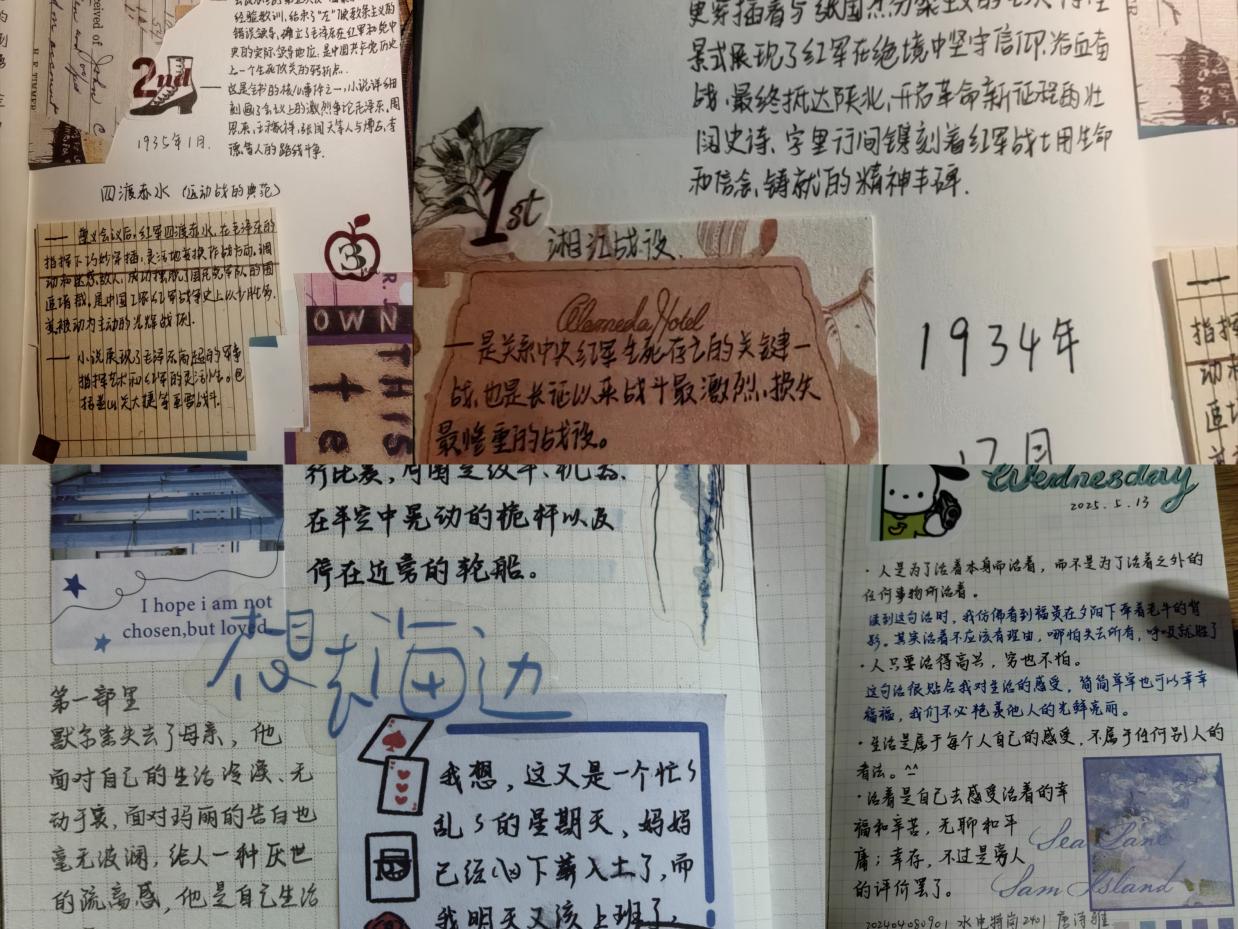 经验教训，结束了"左"倾教条主义的
错误领导，确立了毛泽东在红军和党中
央的实际领导地位，是中国共产党历史
上一个生死攸关的转折点。
这是全书的核心事件之一，小说详细
刻画了会议上的激烈争论毛泽东、周
恩来、王稼祥、张闻天等人与博古、李
德等人的路线斗争。
2nd
1935年1月.
四渡赤水（运动战的典范）
3
遵义会议后，红军四渡赤水，在毛泽东的
指挥下巧妙穿插，灵活地变换作战方向，调
动和迷惑敌人，成功摆脱了国民党军队的围
追堵截。是中国工农红军战争史上以少胜多，
变被动为主动的光辉战例.
小说展现了毛泽东高超的军事
指挥艺术和红军的灵活机动。包
括娄山关大捷等重要战斗.
OWN
THIS
更穿插着与张国焘分裂主义的
景式展现了红军在绝境中坚守信仰.浴血奋
战，最终抵达陕北，开启革命新征程的壮
阔史诗，字里行间镌刻着红军战士用生命
和信念，铸就的精神丰碑.
1st
湘江战役.
Alameda Hotel
一是关系中央红军生死存亡的关键一
战，也是长征以来战斗最激烈，损失
最惨重的战役。
1934年
12月
指挥
动和
追堵
在半空中晃动的桅杆以及
停在近旁的轮船。
I hope i am not
chosen,but loved
想去海边
第一部里
默尔索失去了母亲，他
面对自己的生活冷漠、无
动于衷，面对玛丽的告白也
毫无波澜，给人一种厌世
的疏离感，他是自己生活
我想，这又是一个忙忙
乱乱的星期天，妈妈
已经下葬入土了，而
我明天又该上班了，
Wednesday
2025.5.13
·人是为了活着本身而活着，而不是为了活着之外的
任何事物所活着。
读到这句话时，我仿佛看到福贵在夕阳下牵着老牛的背
影。其实活着不应该有理由，哪怕失去所有，呼吸就胜了
·人只要活得高兴，穷也不怕。
这句话很贴合我对生活的感受，简简单单也可以幸幸
福福，我们不必艳羡他人的光鲜亮丽。
·生活是属于每个人自己的感受，不属于任何别人的
看法。^^
·活着是自己去感受活着的幸
福和辛苦，无聊和平
庸；幸存，不过是旁人
的评价罢了。
Sea Lane
Sam Island
202404080901 水电特岗2401 唐诗雅